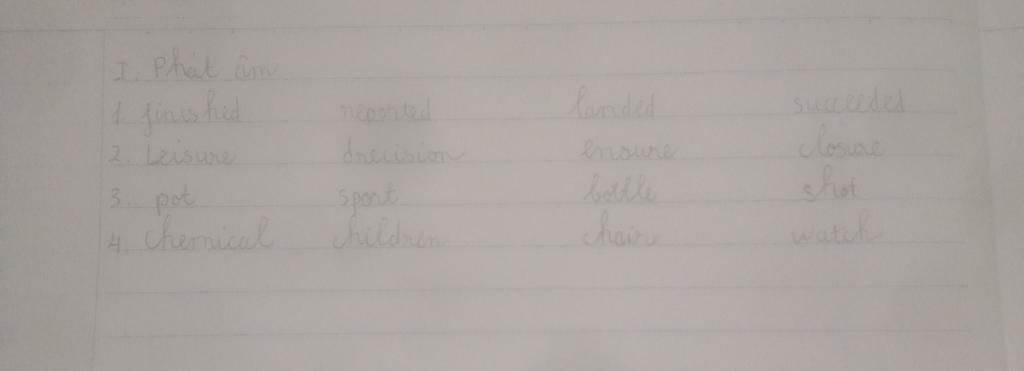 I. Phát âm
1. finished reported landed succeeded
2. Leisure drecision ensure closure
3. pot sport bottle shot
4. Chemical children chair watch